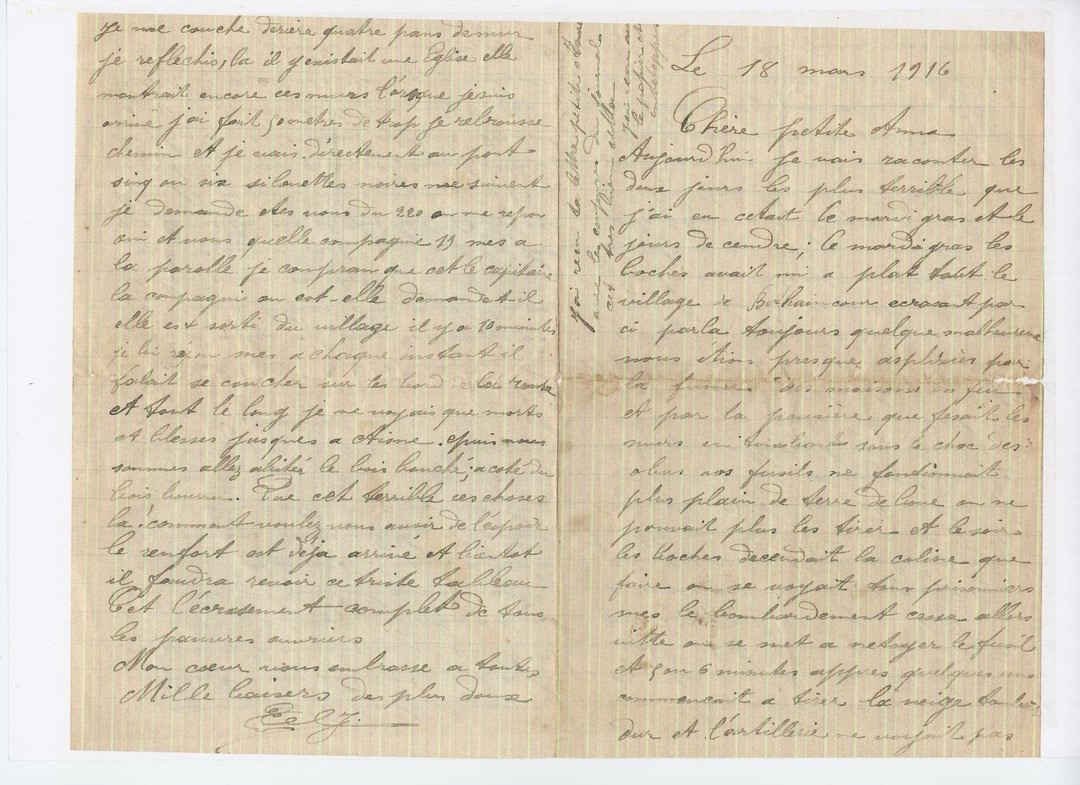 Le 18 mars 1916
Chère petite Anna
Aujourd'hui je vais raconter les
deux jours les plus terrible que
j'ai eu cetait le mardi gras et le
jours de cendre; le mardi gras les
boches avait mi a plat tout le
village de ecrasant par
ci parla toujours quelque malheureux
nous étion presque par
la fumé des maisons en feu
et par la pousière que fesait les
murs en sous le choc des
obus nos fusils ne fontionnait
plus plain de terre de boue on ne
pouvait plus les tirer et le soir
les boches decendait la coline que
faire on se voyait tous prisonniers
mes le bombardement cessa allors
vitte on se met a netoyer le fusil
et 5 ou 6 minutes appres quelques uns
commencait a tirer la neige
dur et l'artillerie ne voyait pas
Je me couche derière quatre pans de mur
je reflechis, la il y existait une Eglise elle
montrait encore ces murs l'orsque je suis
arrivé j'ai fait 50 metres de trop je rebrousse
chemin et je vais directement au port
sinq ou six silouettes noires me suivent
je demande etes vous du 220 on me repon
oui et vous quelle compagnie 19 mes a
la parolle je compran que cet le capitaine
la compagni ou est-elle demande t-il
elle est sorti du village il y a 10 minutes
je lui répon mes a chaque instant il
falait se coucher sur les bord de la route
et tout le long je ne voyais que morts
et blesses jusques a . puis nous
sommes allez le bois bouché; a coté du
bois bourru. Que cet terrible ces choses
la: comment voulez vous avoir de l'espoir
le renfort est déja arrivé et bientot
il faudra revoir ce triste tableau
Cet l'écrasement complet de tous
les pauvres ouvriers
Mon cœur vous embrasse a toutes
Mille baisers des plus doux
J'ai recu ta lettre petite Anna
avec les du journal
cet tres bien cella
j'ai recu au
le papier et
enveloppes